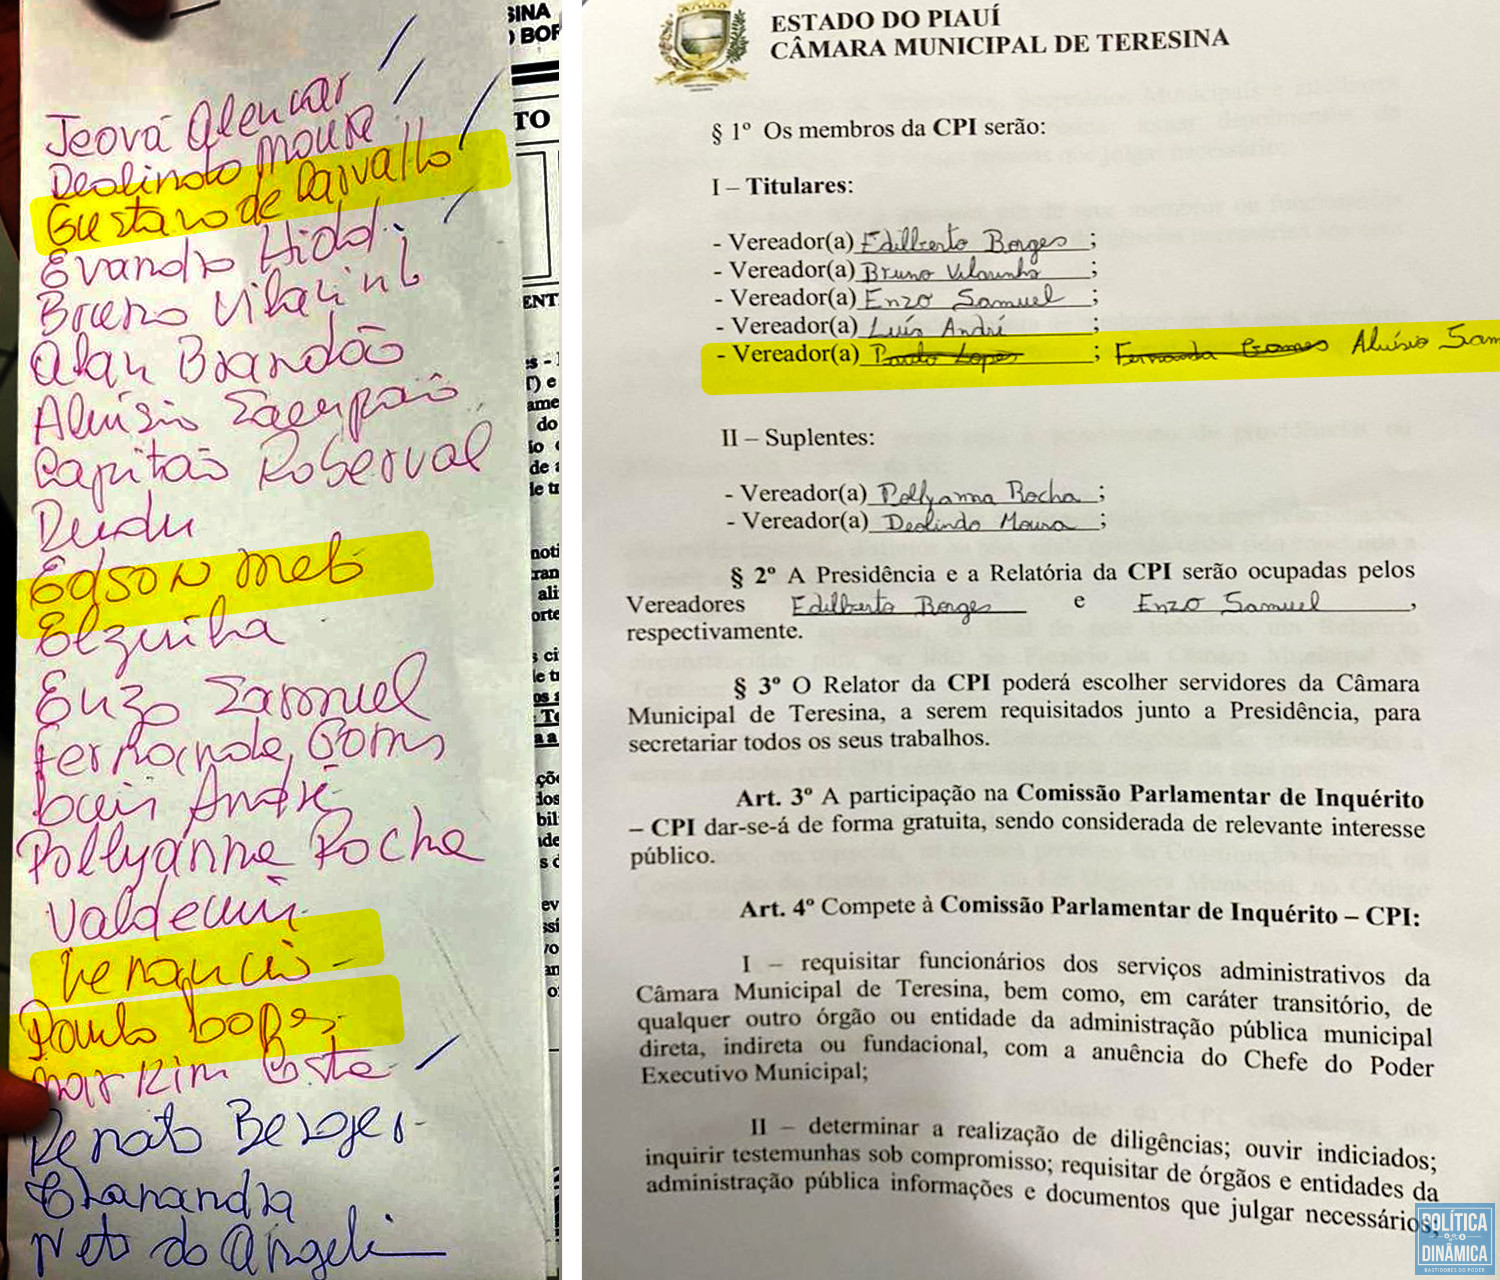 SINA
O BOR
TO
ENT
Jeová Alencar
Deolindo Moura
Gustavo de Carvalho
Evandro Hidd
Bruno Vilarinho
Alan Brandão
Aluísio Sampaio
Capitão Roberval
Dudu
Edson Melo
Elzuila
Enzo Samuel
Fernanda Gomes
Luis André
Pollyanna Rocha
Valdemir
Venancio
Paulo Lopes
Markim Costa
Renato Berger
Thanandra
Neto do Angelim
ESTADO DO PIAUÍ
CÂMARA MUNICIPAL DE TERESINA
§ 1º Os membros da CPI serão:
I – Titulares:
- Vereador(a) Edilberto Borges ;
- Vereador(a) Bruno Vilarinho ;
- Vereador(a) Enzo Samuel ;
- Vereador(a) Luís André ;
- Vereador(a) Paulo Lopes ; Fernanda Gomes Aluísio Sam
II – Suplentes:
- Vereador(a) Pollyanna Rocha ;
- Vereador(a) Deolindo Moura ;
§ 2º A Presidência e a Relatória da CPI serão ocupadas pelos
Vereadores Edilberto Borges e Enzo Samuel ,
respectivamente.
§ 3º O Relator da CPI poderá escolher servidores da Câmara
Municipal de Teresina, a serem requisitados junto a Presidência, para
secretariar todos os seus trabalhos.
Art. 3º A participação na Comissão Parlamentar de Inquérito
– CPI dar-se-á de forma gratuita, sendo considerada de relevante interesse
público.
Art. 4º Compete à Comissão Parlamentar de Inquérito – CPI:
I – requisitar funcionários dos serviços administrativos da
Câmara Municipal de Teresina, bem como, em caráter transitório, de
qualquer outro órgão ou entidade da administração pública municipal
direta, indireta ou fundacional, com a anuência do Chefe do Poder
Executivo Municipal;
II – determinar a realização de diligências; ouvir indiciados;
inquirir testemunhas sob compromisso; requisitar de órgãos e entidades da
administração pública informações e documentos que julgar necessários;
POLÍTICA
DINÂMICA
BASTIDORES DO PODER